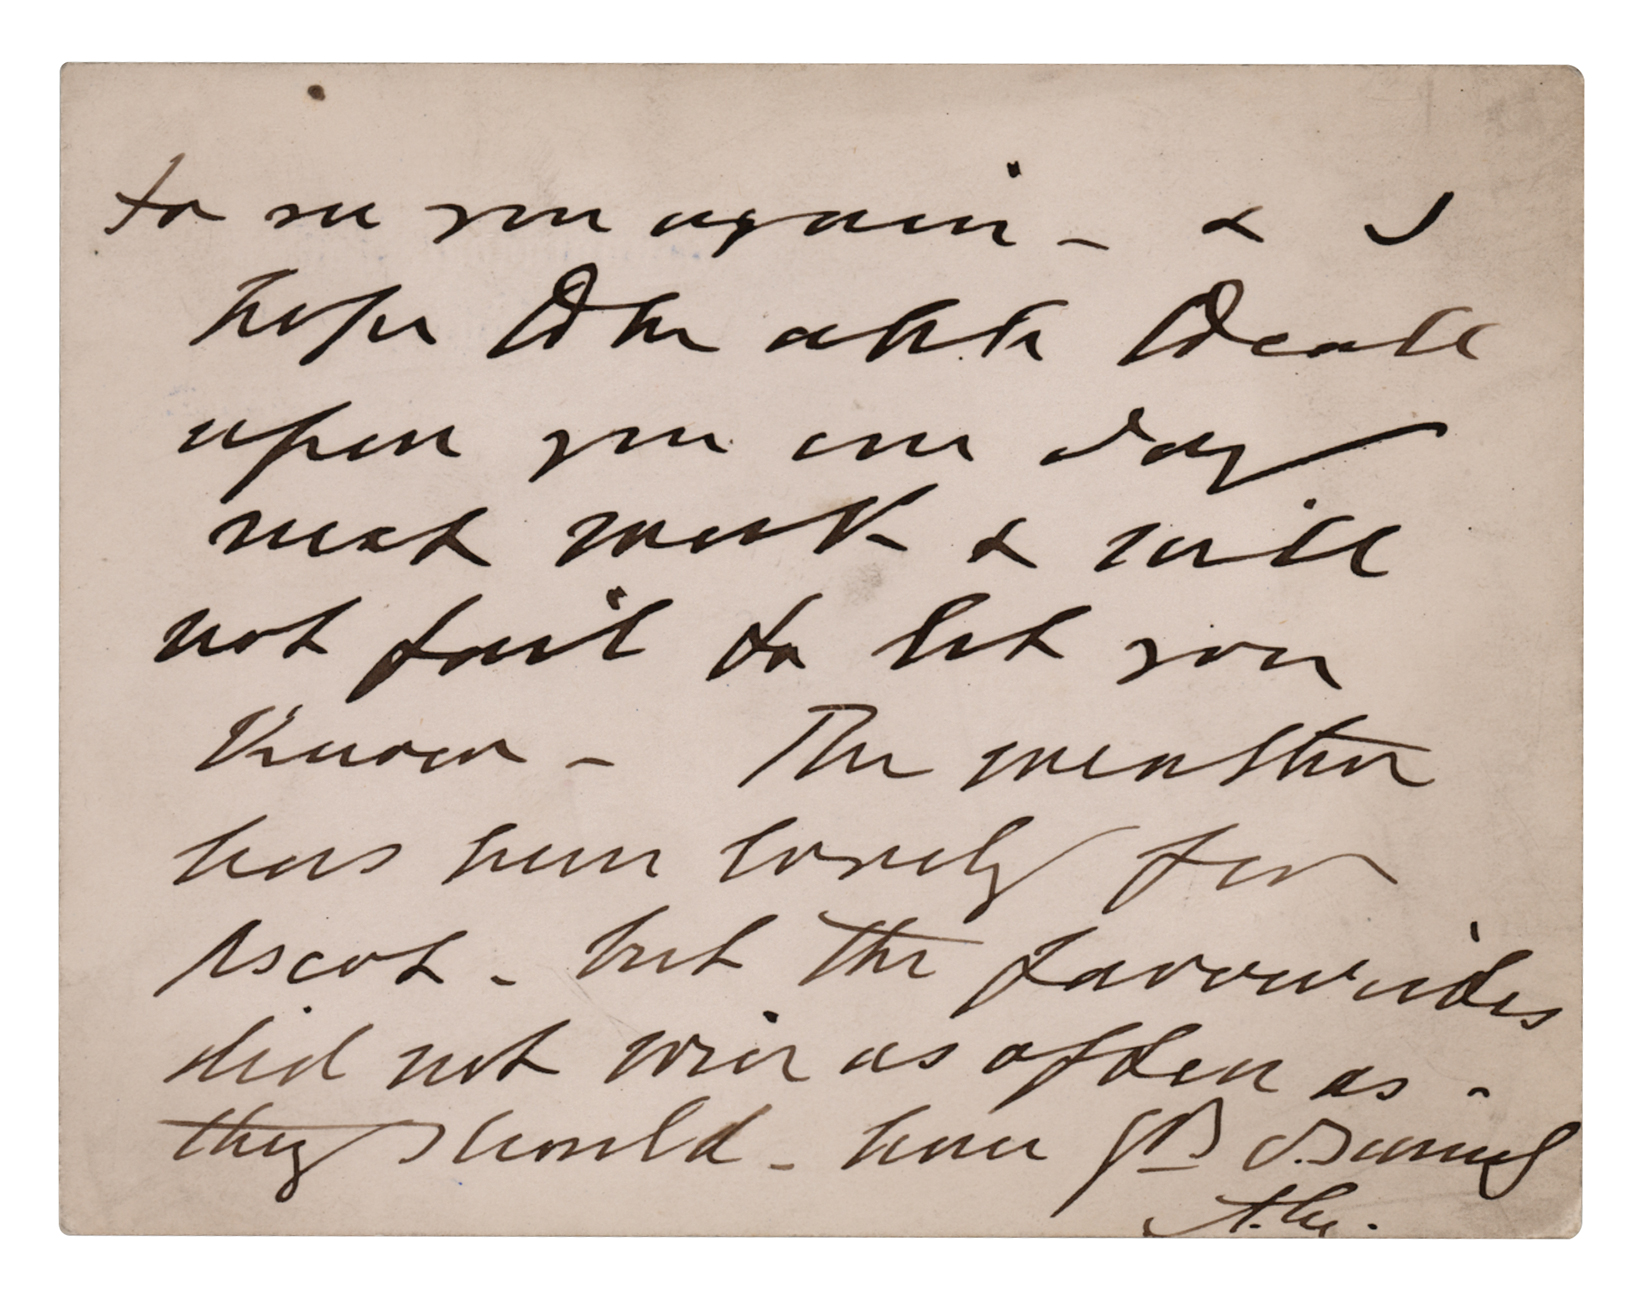 to see you again – & I
hope to be able to call
upon you one day
next week & will
not fail to let you
know – The weather
has been lovely for
Ascot – but the favourites
did not win as often as –
they should –